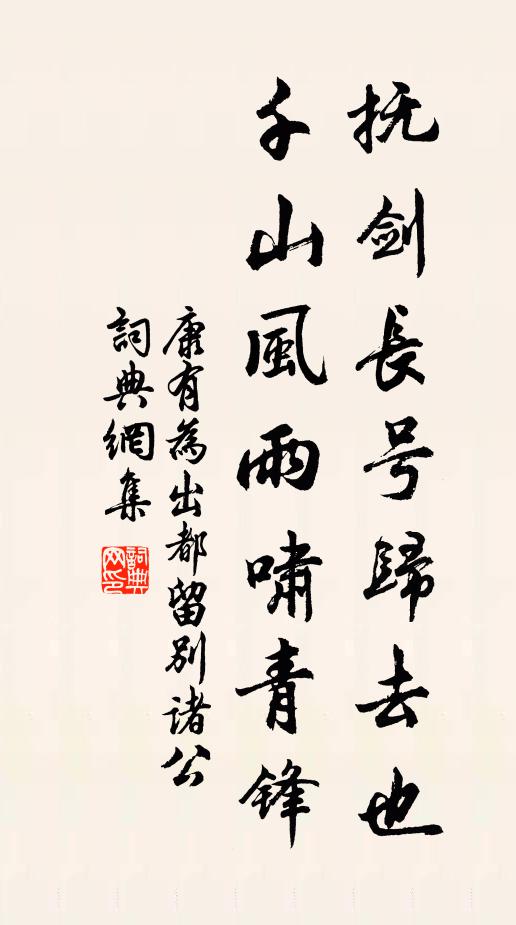 抚剑長号歸去也
千山風雨嘯青锋
康有為出都留别諸公
詞典網集
詞典
网印